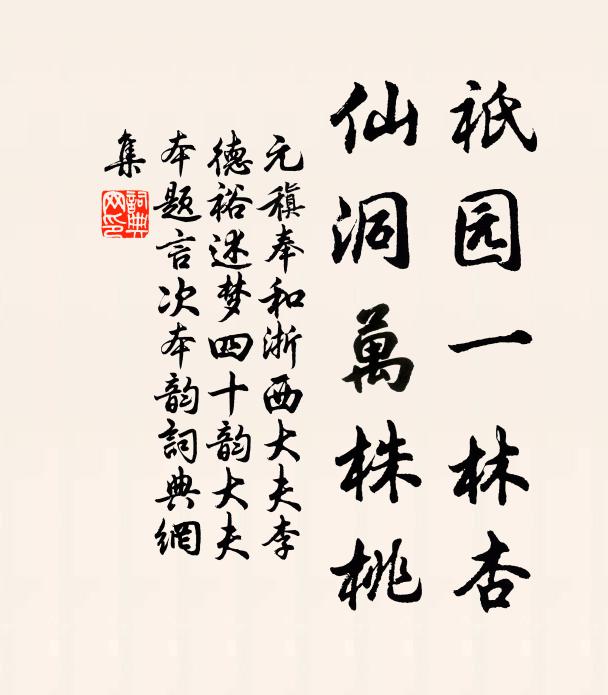 祇园一林杏
仙洞萬株桃
元稹奉和浙西大夫李
德裕述梦四十韵大夫
本题言次本韵詞典網
集
詞典
网印